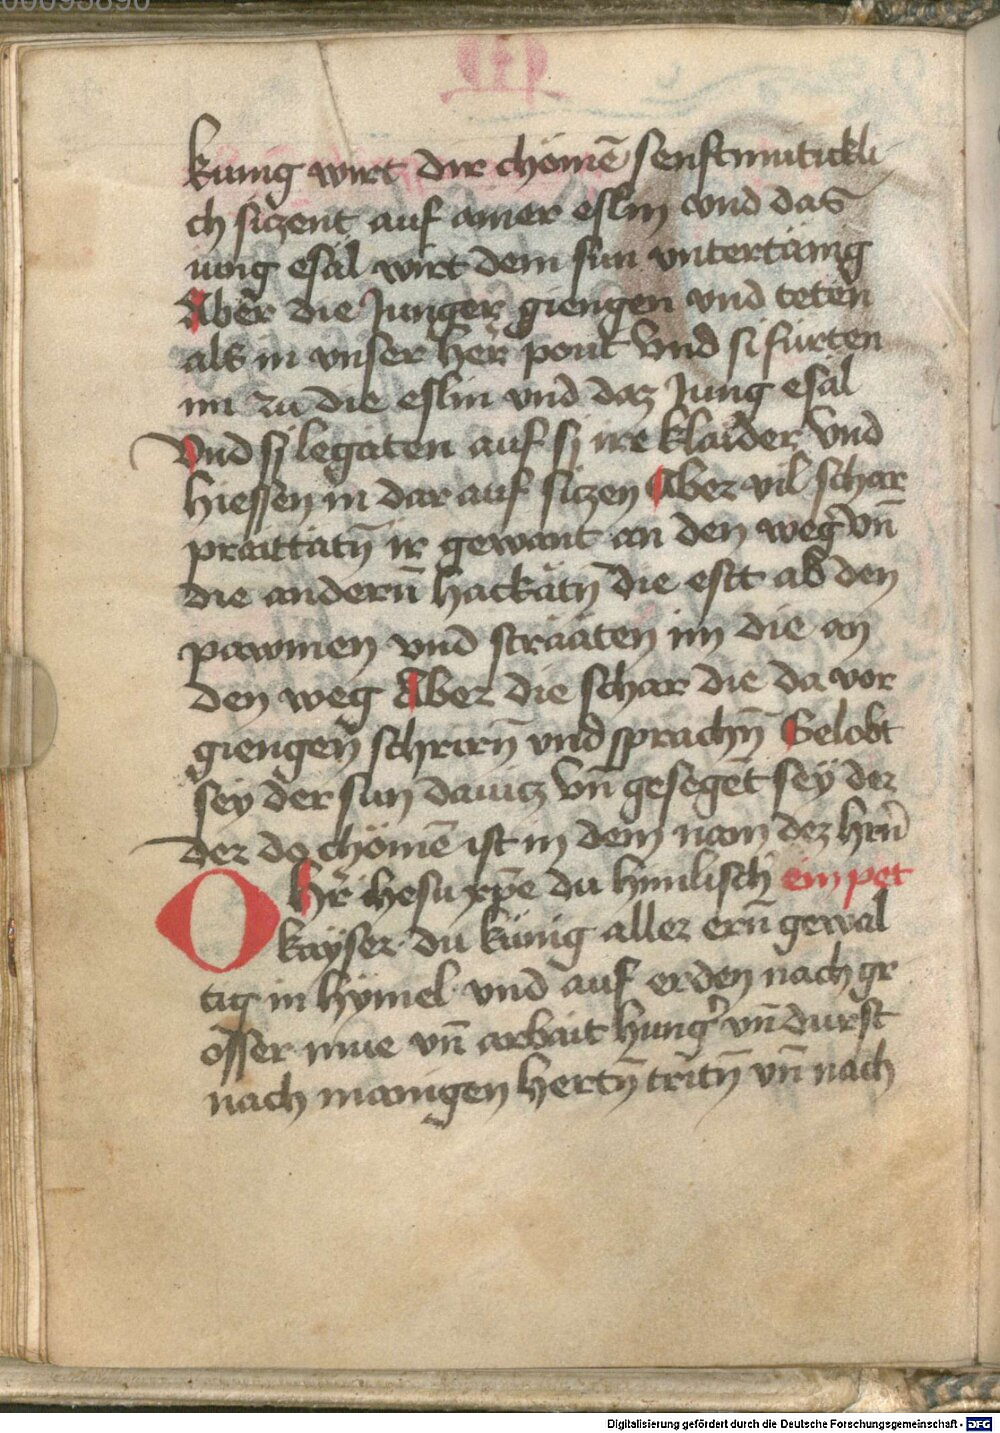 00095890
kunig wirt dir chömē senftmutickli
ch siczent auf ainer eslin vnd das
iung esäl wirt dem sun vntertänig
Aber die Junger giengen vnd teten
als in vnser her̄ pout Vnd si fürten
im zu die eslin vnd daz Jung esäl
Vnd sy legäten auf sy ire klaider Vnd
hiessen in dar auf siczen Aber vil schar
praittatn̄ ir gewant an den weg vn̄
die andern̄ hackätn̄ die estt ab den
pawmen vnd strääten im die an
den weg Aber die schar die da vor
giengen schrirn̄ vnd sprachn̄ Gelobt
sey der sun dauicz vn̄ gesegēt sey der
der do chömē ist in dem nam dez hrn̄
O hr̄ ihesu xp̄e du himlisch' ein pet
kayser du künig aller ern̄ gewal
tig in hymel vnd auf erden nach gr
osser mue vn̄ arbait hung' vn̄ durst
nach manigen hertn̄ tritn̄ vn̄ nach
Digitalisierung gefördert durch die Deutsche Forschungsgemeinschaft - DFG